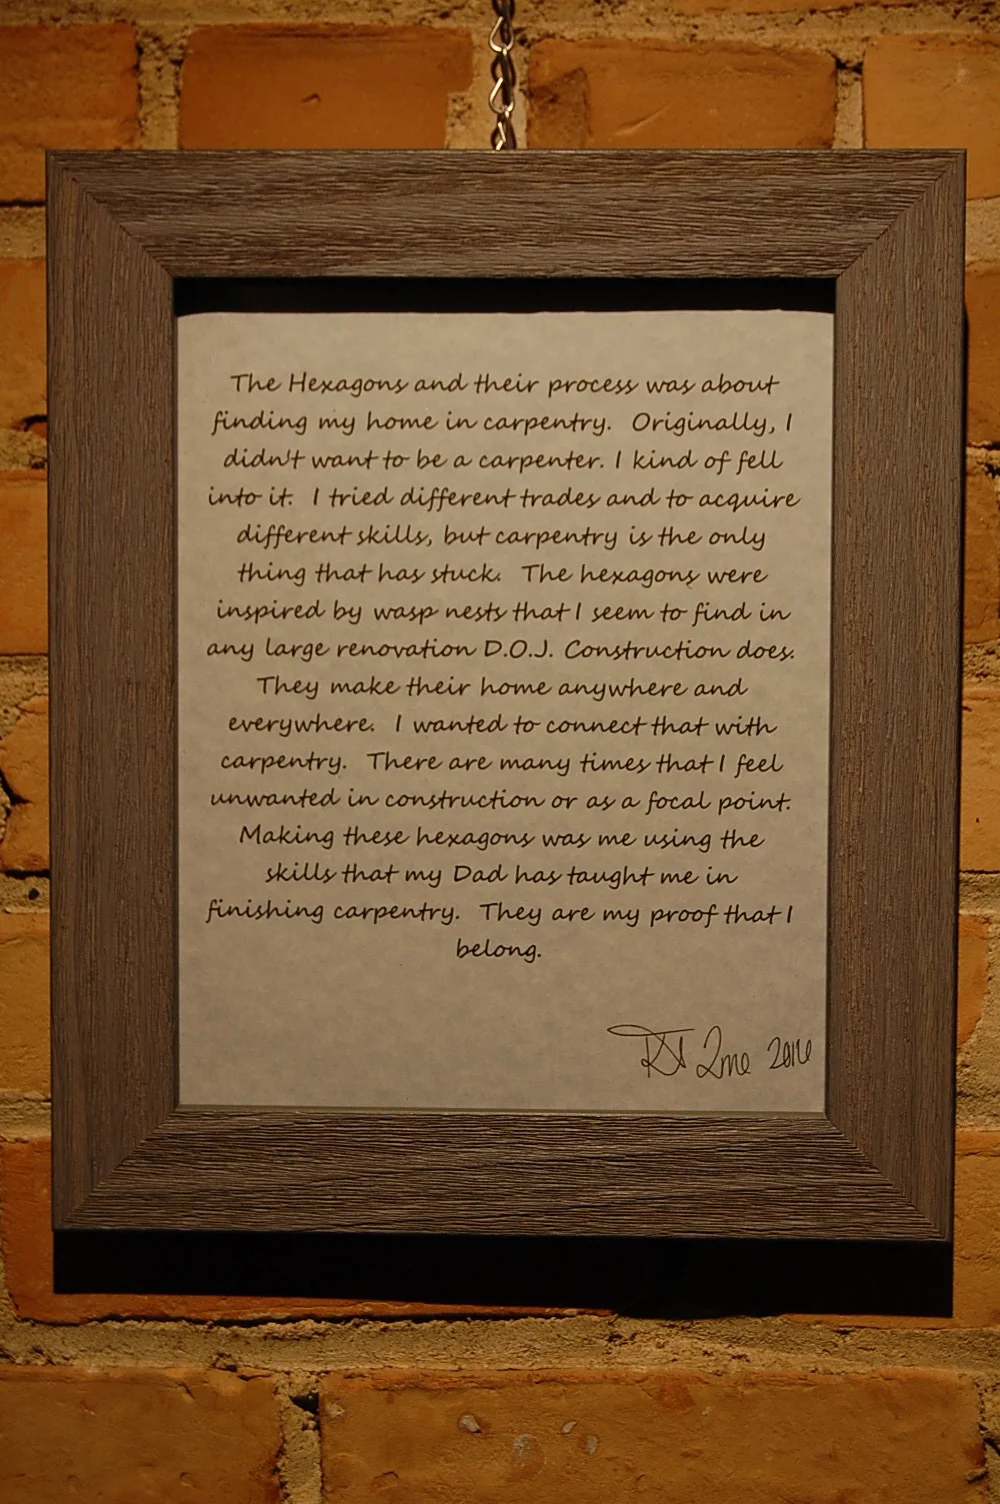 The Hexagons and their process was about
finding my home in carpentry. Originally, I
didn't want to be a carpenter. I kind of fell
into it. I tried different trades and to acquire
different skills, but carpentry is the only
thing that has stuck. The hexagons were
inspired by wasp nests that I seem to find in
any large renovation D.O.J. Construction does.
They make their home anywhere and
everywhere. I wanted to connect that with
carpentry. There are many times that I feel
unwanted in construction or as a focal point.
Making these hexagons was me using the
skills that my Dad has taught me in
finishing carpentry. They are my proof that I
belong.
2016